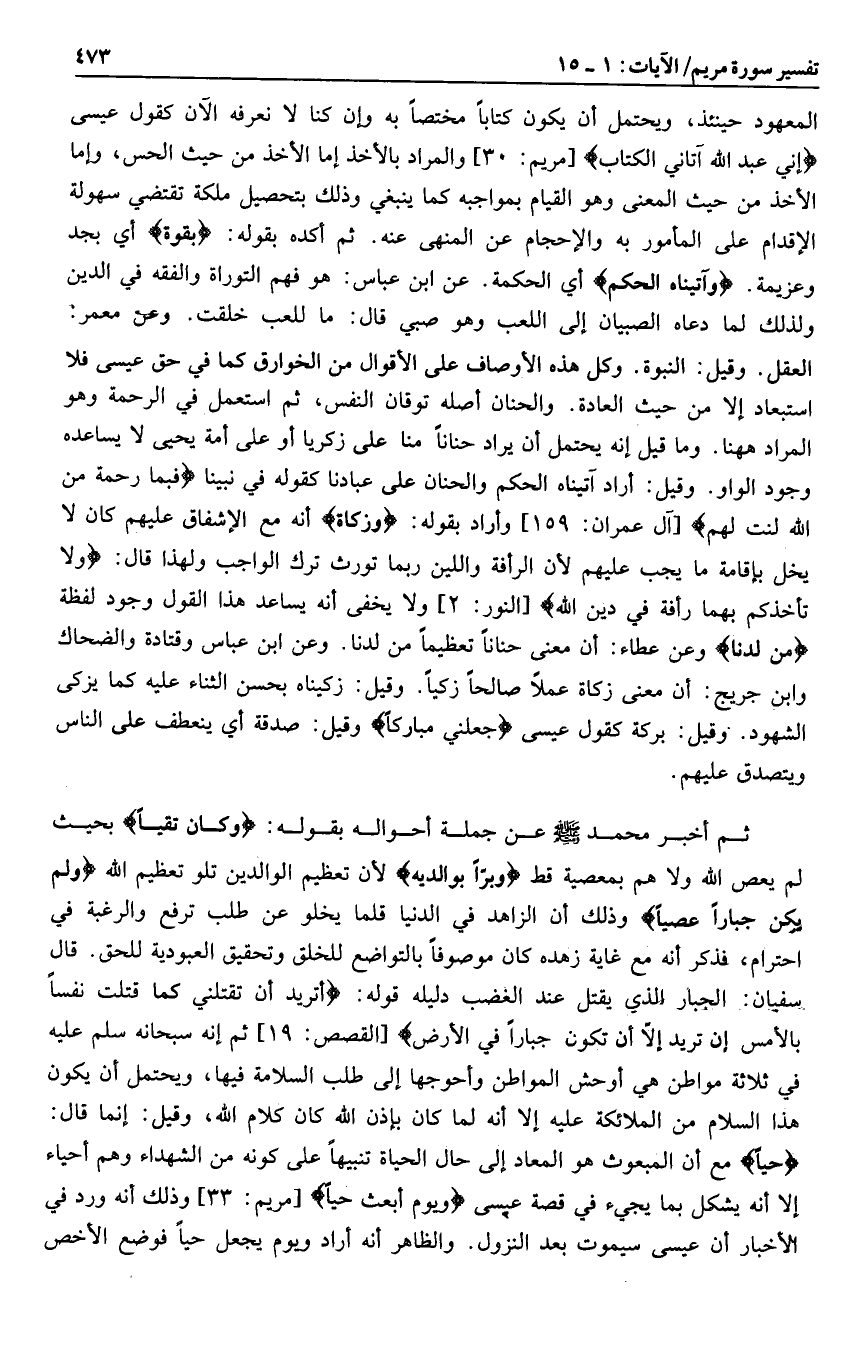 تفسير سورة مريم/ الآيات: ١ ـ ١٥
٤٧٣
المعهود حينئذ، ويحتمل أن يكون كتاباً مختصاً به وإن كنا لا نعرفه الآن كقول عيسى
﴿إني عبد الله آتاني الكتاب﴾ [مريم: ٣٠] والمراد بالأخذ إما الأخذ من حيث الحس، وإما
الأخذ من حيث المعنى وهو القيام بمواجبه كما ينبغي وذلك بتحصيل ملكة تقتضي سهولة
الإقدام على المأمور به والإحجام عن المنهى عنه. ثم أكده بقوله: ﴿بقوة﴾ أي بجد
وعزيمة. ﴿وآتيناه الحكم﴾ أي الحكمة. عن ابن عباس: هو فهم التوراة والفقه في الدين
ولذلك لما دعاه الصبيان إلى اللعب وهو صبي قال: ما للعب خلقت. وعن معمر:
العقل. وقيل: النبوة. وكل هذه الأوصاف على الأقوال من الخوارق كما في حق عيسى فلا
استبعاد إلا من حيث العادة. والحنان أصله توقان النفس، ثم استعمل في الرحمة وهو
المراد ههنا. وما قيل إنه يحتمل أن يراد حناناً منا على زكريا أو على أمة يحيى لا يساعده
وجود الواو. وقيل: أراد آتيناه الحكم والحنان على عبادنا كقوله في نبينا ﴿فبما رحمة من
الله لنت لهم﴾ [آل عمران: ١٥٩] وأراد بقوله: ﴿وزكاة﴾ أنه مع الإشفاق عليهم كان لا
يخل بإقامة ما يجب عليهم لأن الرأفة واللين ربما تورث ترك الواجب ولهذا قال: ﴿ولا
تأخذكم بهما رأفة في دين الله﴾ [النور: ٢] ولا يخفى أنه يساعد هذا القول وجود لفظة
﴿من لدنا﴾ وعن عطاء: أن معنى حناناً تعظيماً من لدنا. وعن ابن عباس وقتادة والضحاك
وابن جريج: أن معنى زكاة عملاً صالحاً زكياً. وقيل: زكيناه بحسن الثناء عليه كما يزكى
الشهود. وقيل: بركة كقول عيسى ﴿جعلني مباركاً﴾ وقيل: صدقة أي ينعطف على الناس
ويتصدق عليهم.
ثم أخبر محمد ﷺ عن جملة أحواله بقوله: ﴿وكان تقياً﴾ بحيث
لم يعص الله ولا هم بمعصية قط ﴿وبرّاً بوالديه﴾ لأن تعظيم الوالدين تلو تعظيم الله ﴿ولم
يكن جباراً عصياً﴾ وذلك أن الزاهد في الدنيا قلما يخلو عن طلب ترفع والرغبة في
احترام، فذكر أنه مع غاية زهده كان موصوفاً بالتواضع للخلق وتحقيق العبودية للحق. قال
سفيان: الجبار الذي يقتل عند الغضب دليله قوله: ﴿أتريد أن تقتلني كما قتلت نفساً
بالأمس إن تريد إلاّ أن تكون جباراً في الأرض﴾ [القصص: ١٩] ثم إنه سبحانه سلم عليه
في ثلاثة مواطن هي أوحش المواطن وأحوجها إلى طلب السلامة فيها، ويحتمل أن يكون
هذا السلام من الملائكة عليه إلا أنه لما كان بإذن الله كان كلام الله، وقيل: إنما قال:
﴿حياً﴾ مع أن المبعوث هو المعاد إلى حال الحياة تنبيهاً على كونه من الشهداء وهم أحياء
إلا أنه يشكل بما يجيء في قصة عيسى ﴿ويوم أبعث حياً﴾ [مريم: ٣٣] وذلك أنه ورد في
الأخبار أن عيسى سيموت بعد النزول. والظاهر أنه أراد ويوم يجعل حياً فوضع الأخص